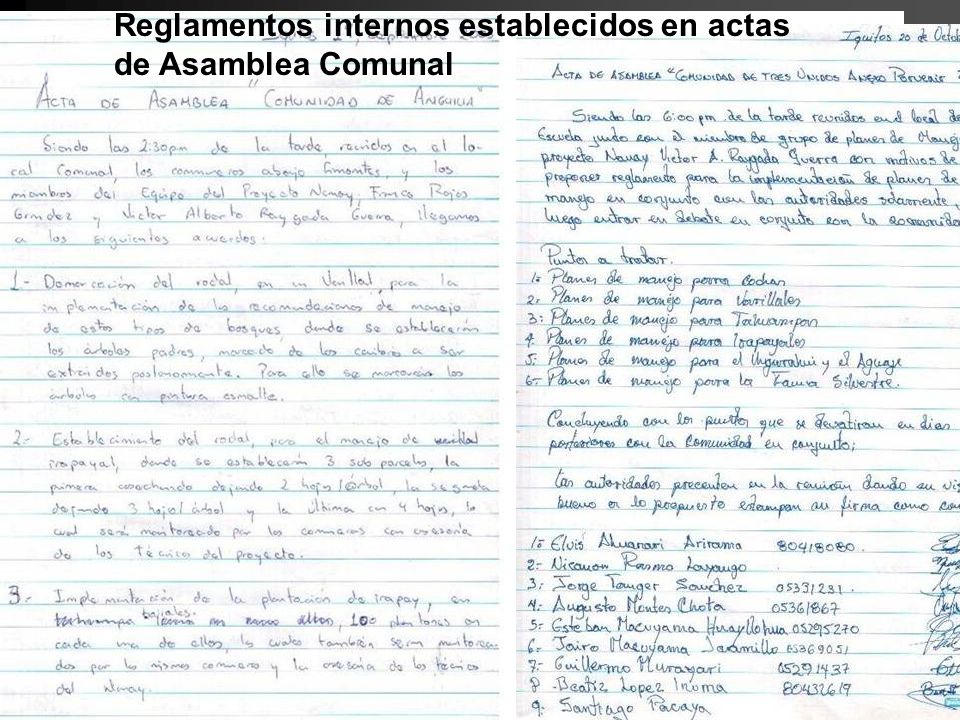 Reglamentos internos establecidos en actas
de Asamblea Comunal
ACTA DE ASAMBLEA "COMUNIDAD DE ANGUILLA"
Siendo las 2:30pm de la tarde, reunidos en el lo-
cal Comunal, los comuneros abajo firmantes, y los
miembros del Equipo del Proyecto Nanay, Rojas
y Victor Alberto Raygada Guerra, llegamos
a los siguientes acuerdos.
1- Demarcación del rodal, en un Varillal, para la
implementación de las recomendaciones de manejo
de estos tipos de bosques, donde se establecerán
los árboles padres, marcado de los cambios a ser
extraidos posteriormente. Para ello se marcarán los
árboles con pintura esmalte.
2- Establecimiento del rodal, para el manejo de
irapayal, donde se establecerán 3 sub parcelas, la
primera cosechando dejando 2 hojas/árbol, la segunda
dejando 3 hojas/árbol y la última con 4 hojas, lo
cual será monitoreado por los comuneros con asesoría
de los técnicos del proyecto.
3- Implementación de la plantación de irapay, en
bajiales. 100 plantones en
cada uno de ellos, lo cuales también serán monitorea
dos por los mismos comuneros y la asesoría de los técnicos
del Nanay.
Iquitos 20 de Octub
ACTA DE ASAMBLEA "COMUNIDAD DE TRES UNIDOS ANEXO PORVENIR
Siendo las 6:00 pm de la tarde reunidos en el local de
Escuela junto con el miembro de grupo de planes de Manej
proyecto Nanay Victor A. Raygada Guerra con motivos de
preponer reglamento para la implementación de planes de
manejo en conjunto con las autoridades solamente y
luego entrar en debate en conjunto con la comunidad
Puntos a tratar.
1- Planes de manejo para Cochas
2- Planes de manejo para Varillales
3- Planes de manejo para Tahuampas
4- Planes de manejo para Irapayales
5- Planes de manejo para el Ungurahui y el Aguaje
6- Planes de manejo para la Fauna Silvestre.
Concluyendo con los puntos que se devatiran en dias
posteriores con la Comunidad en conjunto;
Las autoridades precenten en la reunión dando su vis
bueno a lo propuesto estampan su firma como
1- Elvis Ahuanari Arirama 80418080.
2- Lozango
3- Jorge Tanger Sanchez 05331231.
4- Augusto Montes Chota 05361867
5- Esteban Macuyama Huayllahua 05295270
6- Jairo Macuyama Jaramillo 05369051
7- Guillermo Murayari 05291437
8- Beatiz Lopez Inuma 80432619
9- Santiago Pacaya